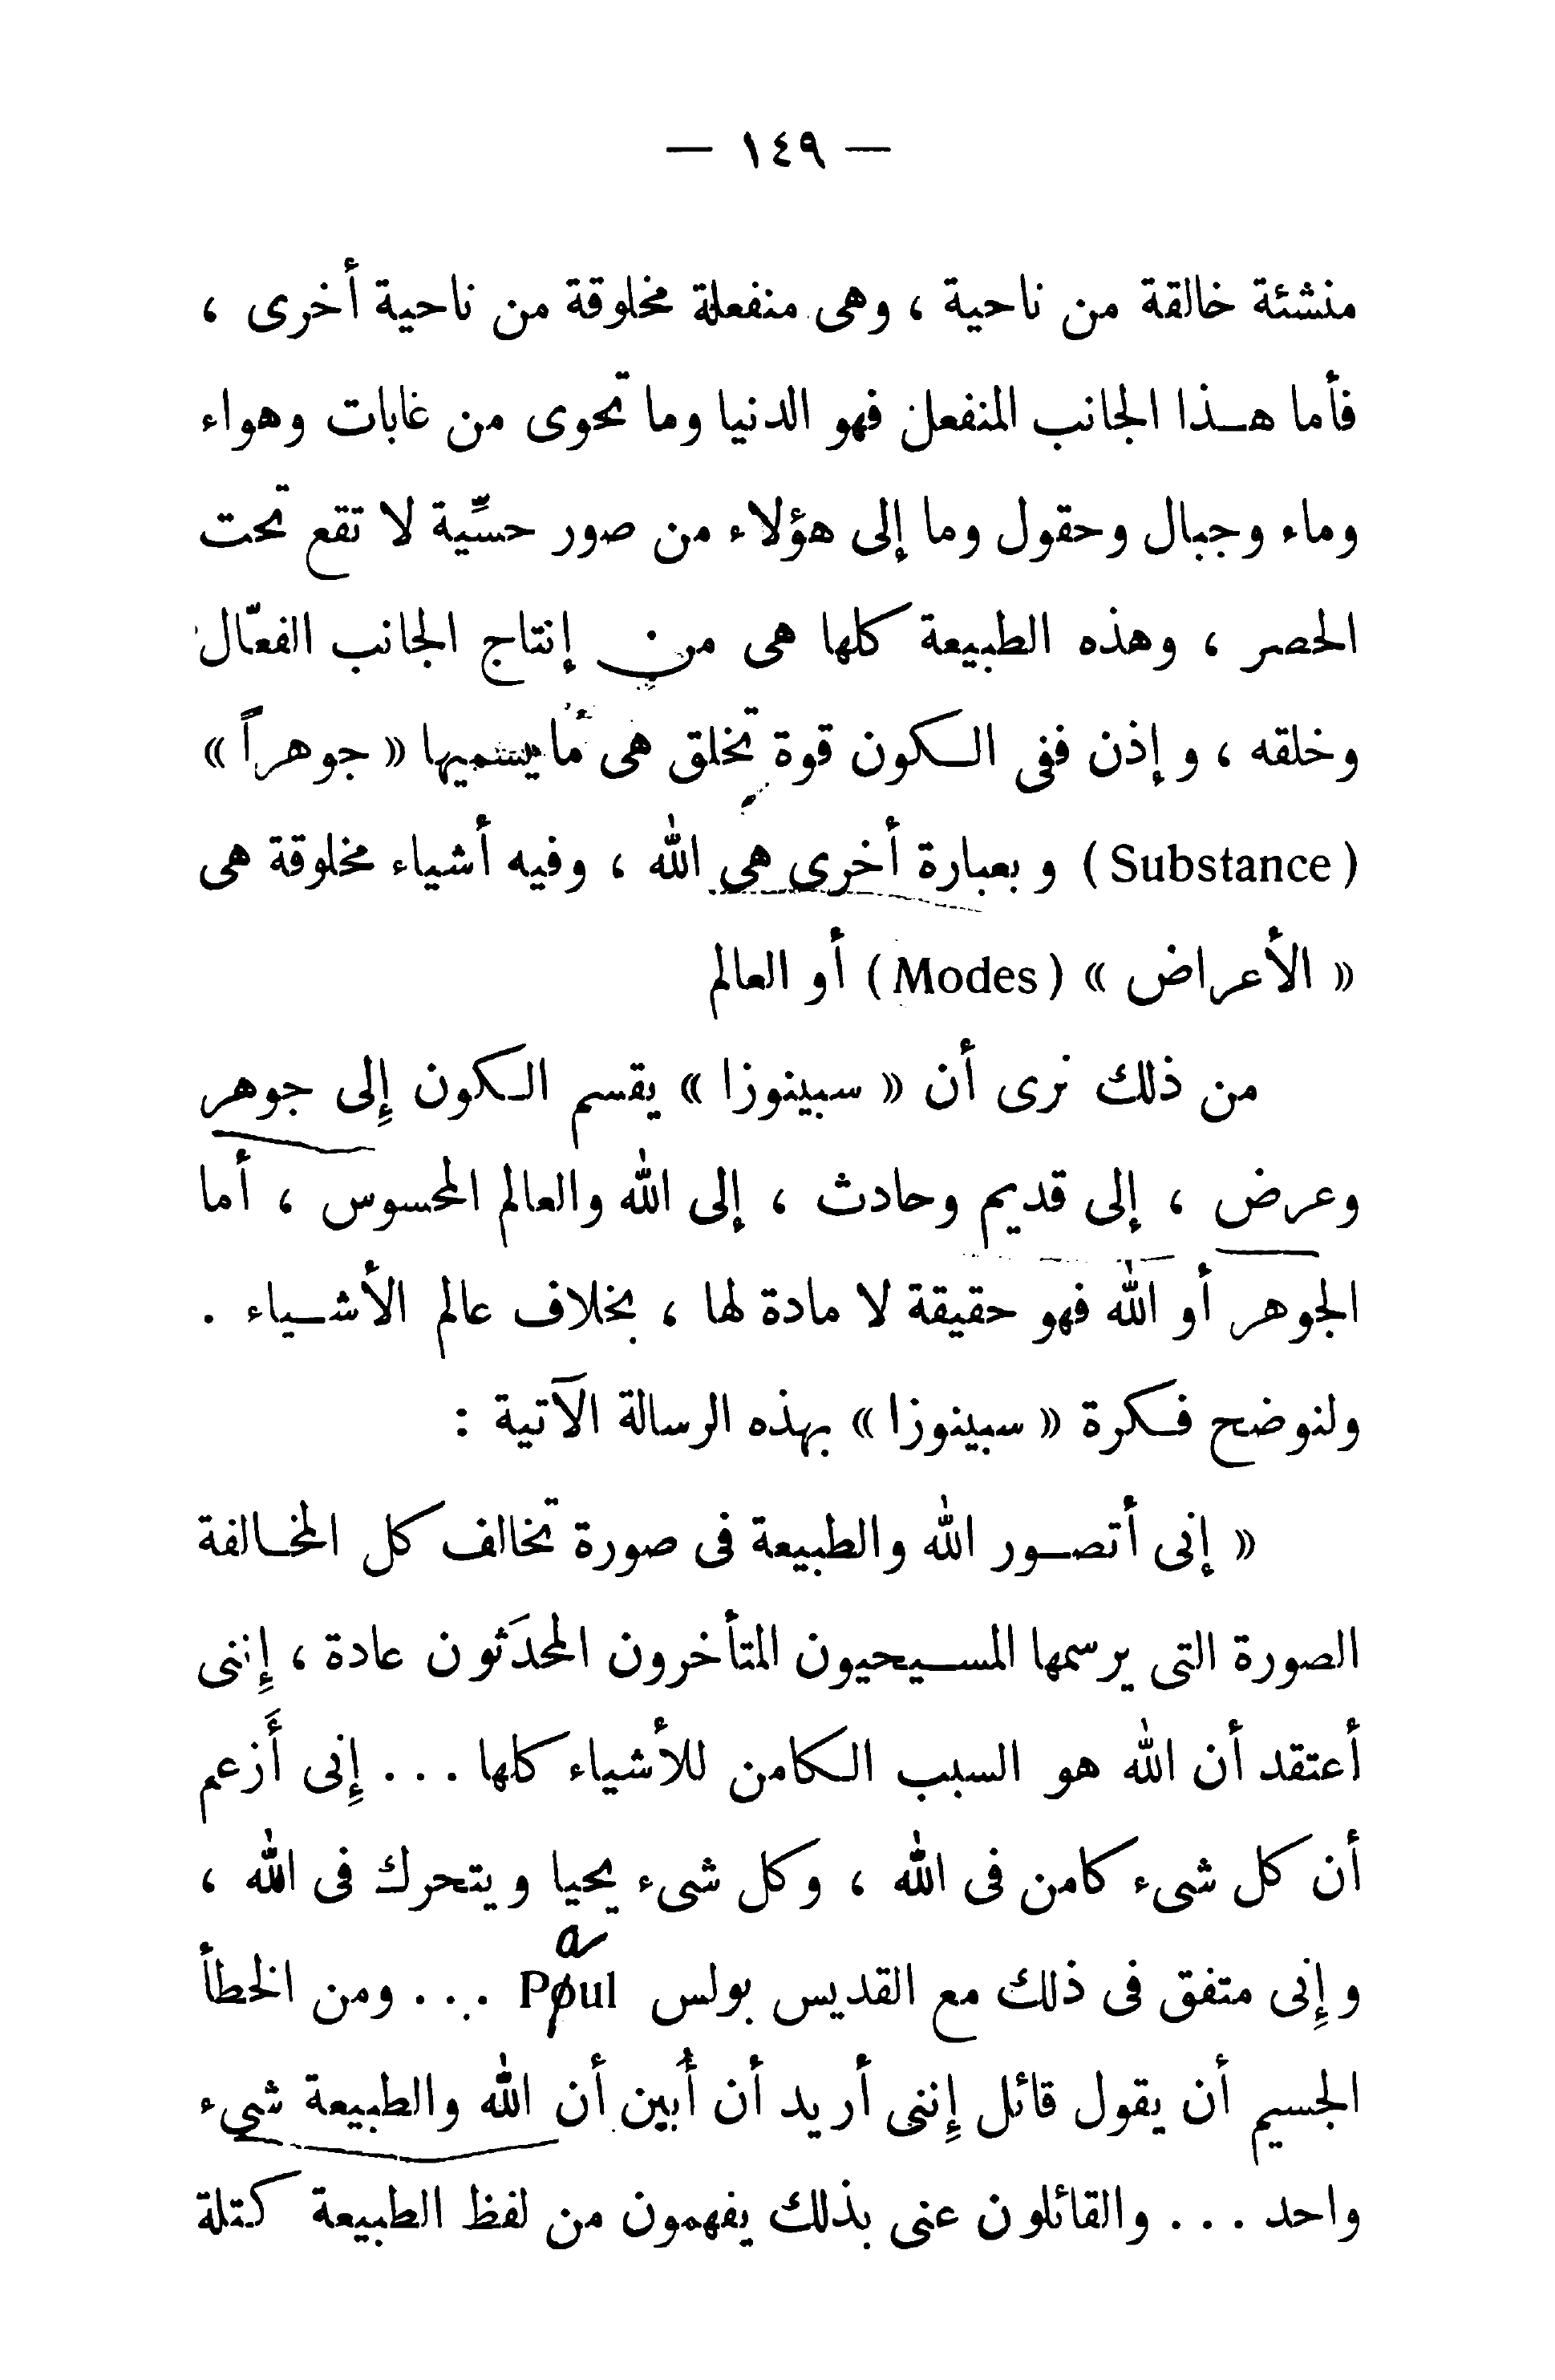 — ١٤٩ —
منشئة خالقة من ناحية ، وهى منفعلة مخلوقة من ناحية أخرى ،
فأما هـذا الجانب المنفعل فهو الدنيا وما تحوى من غابات وهواء
وماء وجبال وحقول وما إلى هؤلاء من صور حسِّية لا تقع تحت
الحصر ، وهذه الطبيعة كلها هى من إنتاج الجانب الفعّال
وخلقه ، وإذن ففى الـكون قوة تخلق هى ما يسميها « جوهراً »
(Substance) وبعبارة أخرى هى الله ، وفيه أشياء مخلوقة هى
« الأعراض » (Modes) أو العالم
من ذلك نرى أن « سبينوزا » يقسم الـكون إلى جوهر
وعرض ، إلى قديم وحادث ، إلى الله والعالم المحسوس ، أما
الجوهر أو الله فهو حقيقة لا مادة لها ، بخلاف عالم الأشـياء .
ولنوضح فـكرة « سبينوزا » بهذه الرسالة الآتية :
« إنى أتصـور الله والطبيعة فى صورة تخالف كل المخـالفة
الصورة التى يرسمها المسـيحيون المتأخرون المحدَثون عادة ، إِننى
أعتقد أن الله هو السبب الـكامن للأشياء كلها . . . إِنى أَزعم
أن كل شىء كامن فى الله ، وكل شىء يحيا ويتحرك فى الله ،
a
وإِنى متفق فى ذلك مع القديس بولس Poul . . . ومن الخطأ
الجسيم أن يقول قائل إِننى أريد أن أُبين أن الله والطبيعة شىء
واحد . . . والقائلون عنى بذلك يفهمون من لفظ الطبيعة كتلة